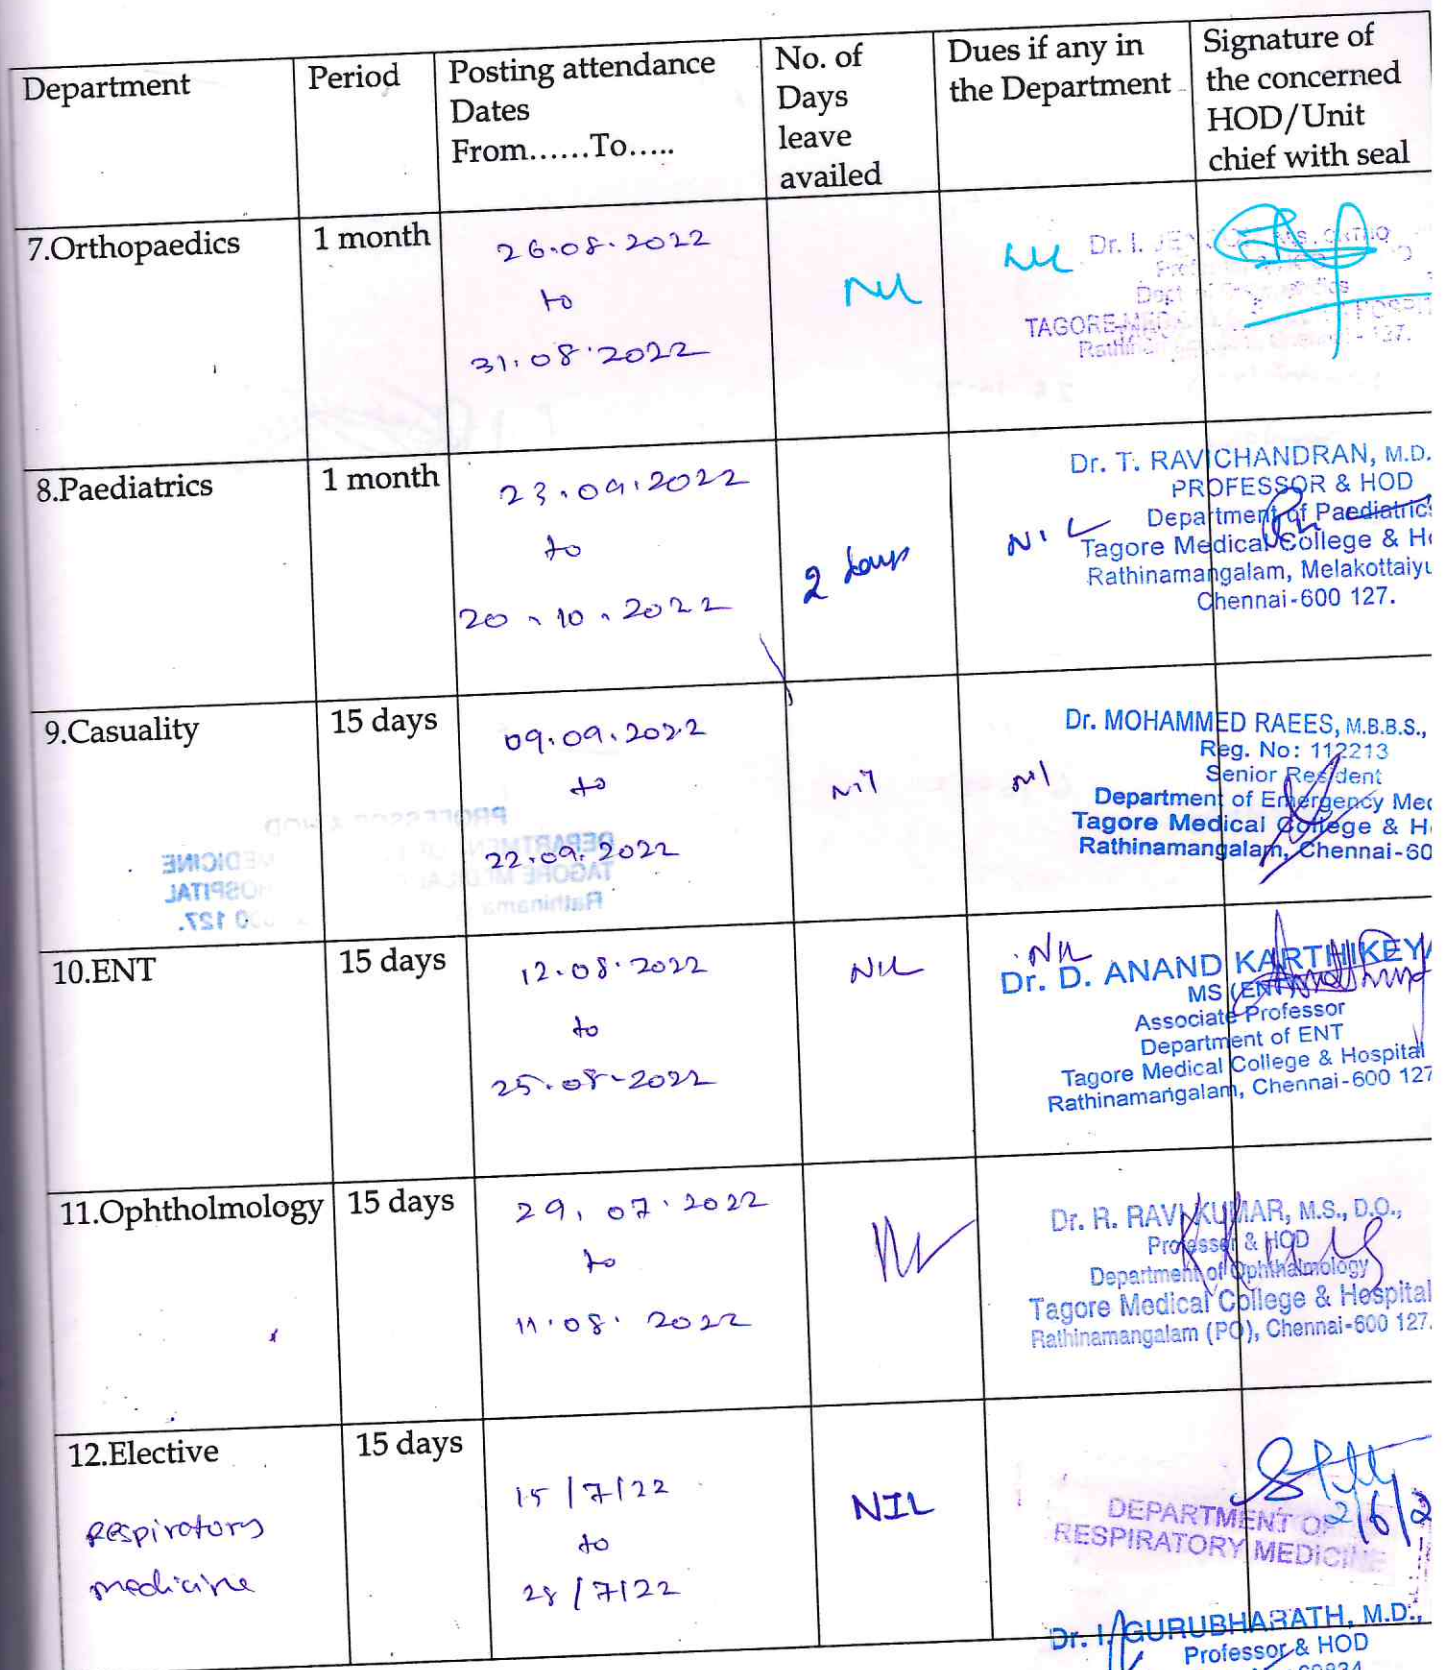 Department
Period
Posting attendance
Dates
From......To.....
No. of
Days
leave
availed
Dues if any in
the Department
Signature of
the concerned
HOD/Unit
chief with seal
7.Orthopaedics
1 month
26.08.2022
to
31.08.2022
Nil
Nil
Dr. I.
MS. ORTHO
TAGORE
8.Paediatrics
1 month
23.09.2022
to
20.10.2022
2 days
NIL
Dr. T. RAVICHANDRAN, M.D.
PROFESSOR & HOD
Department of Paediatrics
Tagore Medical College & Ho
Rathinamangalam, Melakottaiyu
Chennai-600 127.
9.Casuality
15 days
09.09.2022
to
22.09.2022
Nil
Nil
Dr. MOHAMMED RAEES, M.B.B.S.,
Reg. No: 112213
Senior Resident
Department of Emergency Med
Tagore Medical College & H
Rathinamangalam, Chennai-60
PROFESSOR & HOD
DEPARTMEN
MEDICINE
TAGORE MEDICAL
HOSPITAL
Rathinama
0 127.
10.ENT
15 days
12.08.2022
to
25.08-2022
NIL
NIL
Dr. D. ANAND KARTHIKEYA
MS (ENT)
Associate Professor
Department of ENT
Tagore Medical College & Hospital
Rathinamangalam, Chennai-600 127
11.Ophtholmology
15 days
29.07.2022
to
11.08.2022
Dr. R. RAVIKUMAR, M.S., D.O.,
Professor & HOD
Department of Ophthalmology
Tagore Medical College & Hospital
Rathinamangalam (PO), Chennai-600 127.
12.Elective
Respiratory
medicine
15 days
15/7/22
to
28/7/22
NIL
2/6/2
DEPARTMENT OF
RESPIRATORY MEDICINE
Dr. I. GURUBHARATH, M.D.,
Professor & HOD